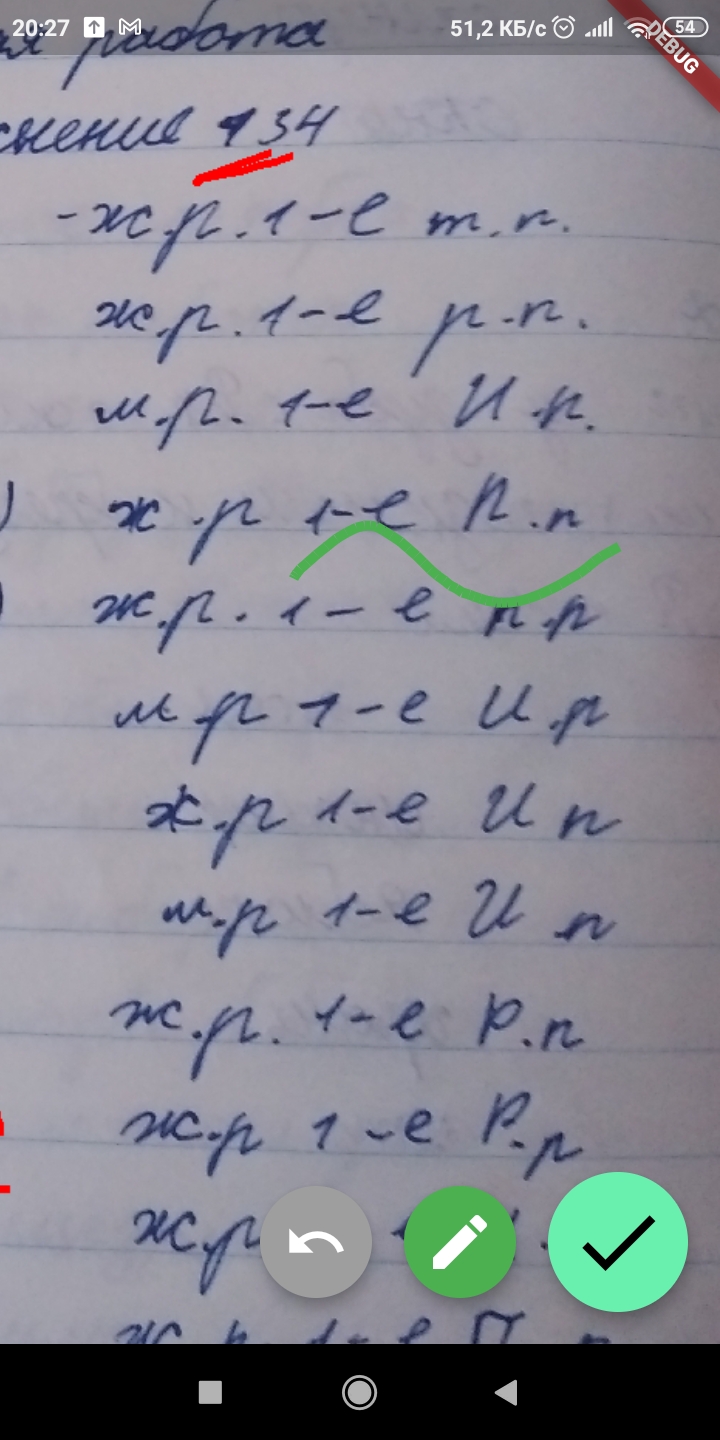 20:27 51,2 КБ/с 54
DEBUG
работа
134
- ж.р. 1-е т.п.
ж.р. 1-е р.п.
м.р. 1-е И.п.
) ж.р 1-е П.п
) ж.р. 1-е п.п
м.р 1-е И.п
ж.р 1-е И п
м.р 1-е И п
ж.р. 1-е Р.п
ж.р 1-е Р.п
ж.р
ж.р. 1-е П п